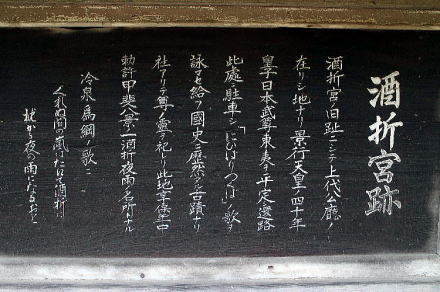 酒折宮跡
酒折宮ノ旧趾ニシテ上代公廳ノ
在リシ地ナリ 景行天皇ノ四十年
皇子日本武尊東夷ヲ平定還路
此處ニ駐車シ「にひはりつくば」ノ歌ヲ
詠マセ給フ國史ニ歴然タル古蹟ナリ
社アリテ尊ノ霊ヲ祀レリ此地享保年中
勅許甲斐八景ノ一酒折夜雨ノ名所ナル
冷泉為綱ノ歌ニ
くれぬ間の嵐はたえて酒折の
枕から夜の雨になるおと